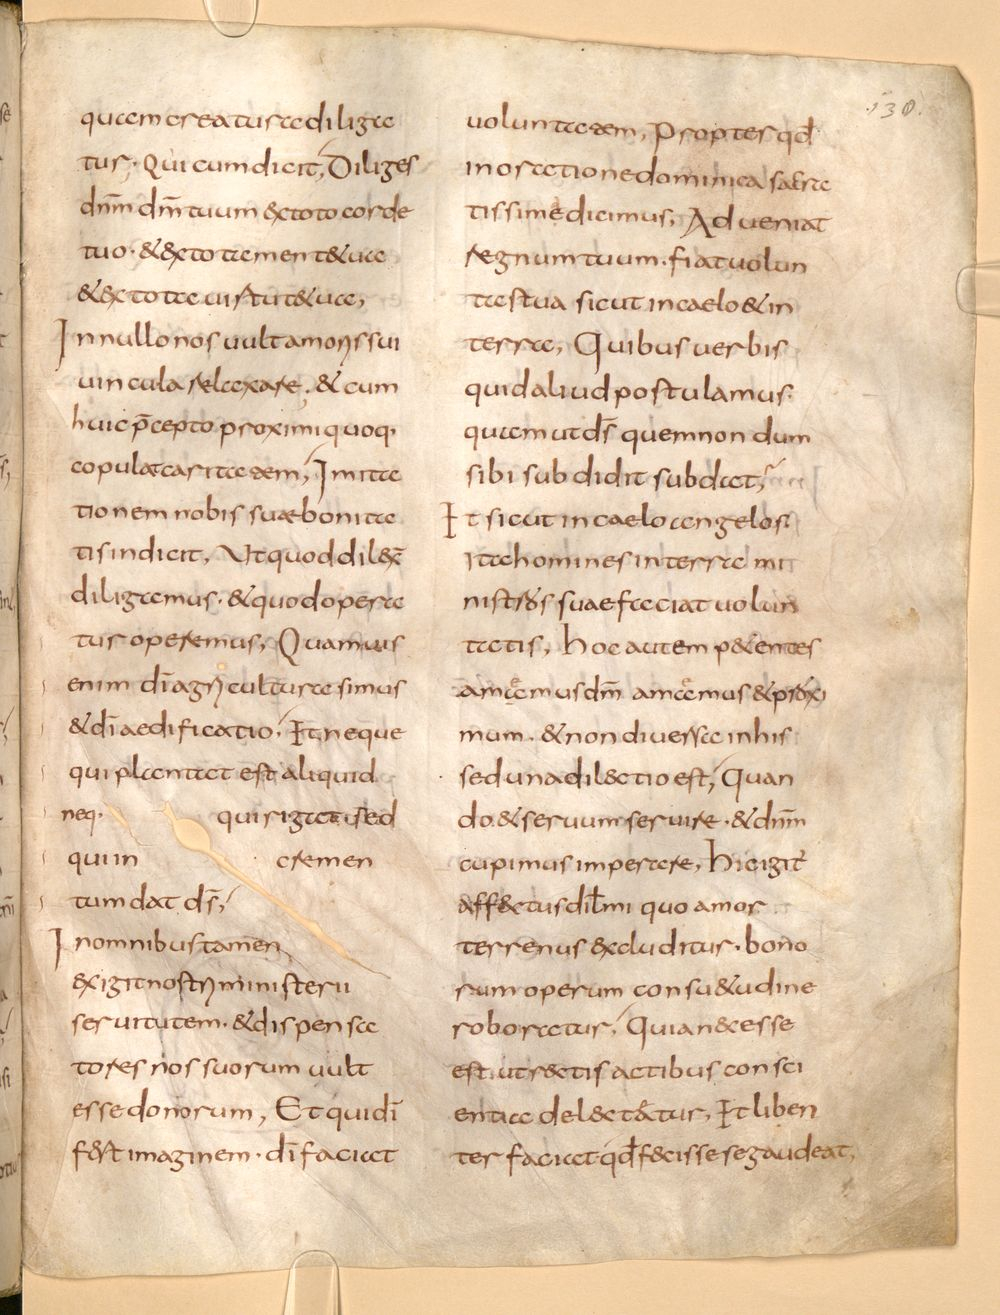 130.
quam creatura diliga
tur. Qui cum dicit, Diliges
dnm̄ dm̄ tuum & ex toto corde
tuo. & ex tota mente tua
& ex tota uirtute tua,
In nullo nos uult amoris sui
uincula relaxare. & cum
huic p̄cepto proximi quoq.
copulat caritatem, Imita
tionem nobis suae bonita
tis indicit, Ut quod dilex̄
diligamus. & quod opera
tur operemus, Quamuis
enim dī agri cultura simus
& dī aedificatio, Et neque
qui plantat est aliquid
neq. qui rigat. sed
qui in cremen
tum dat ds̄,
In omnibus tamen
exigit nostri ministerii
seruitutem. & dispensa
tores nos suorum uult
esse donorum, Et qui dī
fert imaginem. dī faciat
uoluntatem, Propter qd̄
in oratione dominica sacra
tissime dicimus, Adueniat
regnum tuum. fiat uolun
tas tua sicut in caelo & in
terra, Quibus uerbis
quid aliud postulamus.
quam ut ds̄ quem nondum
sibi subdidit subdat,
Et sicut in caelo angelos.
ita homines in terra mi
nistros suae faciat uolun
tatis, hoc autem petentes
amemus dm̄ amemus & proxi
mum. & non diuersa in his
sed una dilectio est, Quan
do. & seruum seruire. & dnm̄
cupimus imperare, hic igit̄
affectus dil̄mi quo amor
terrenus excluditur. bono
rum operum consuetudine
roboratur, Quia necesse
est. ut rectis actibus consci
entia delectatur, Et liben
ter faciat qd̄ fecisse se gaudeat,